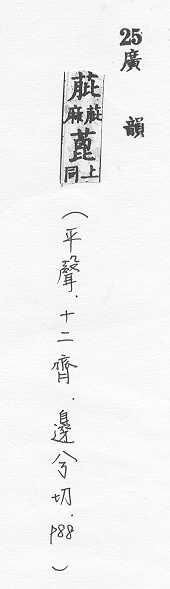 25 廣韻
麻
蓖
上同
(平聲．十二齊．邊兮切．P88)